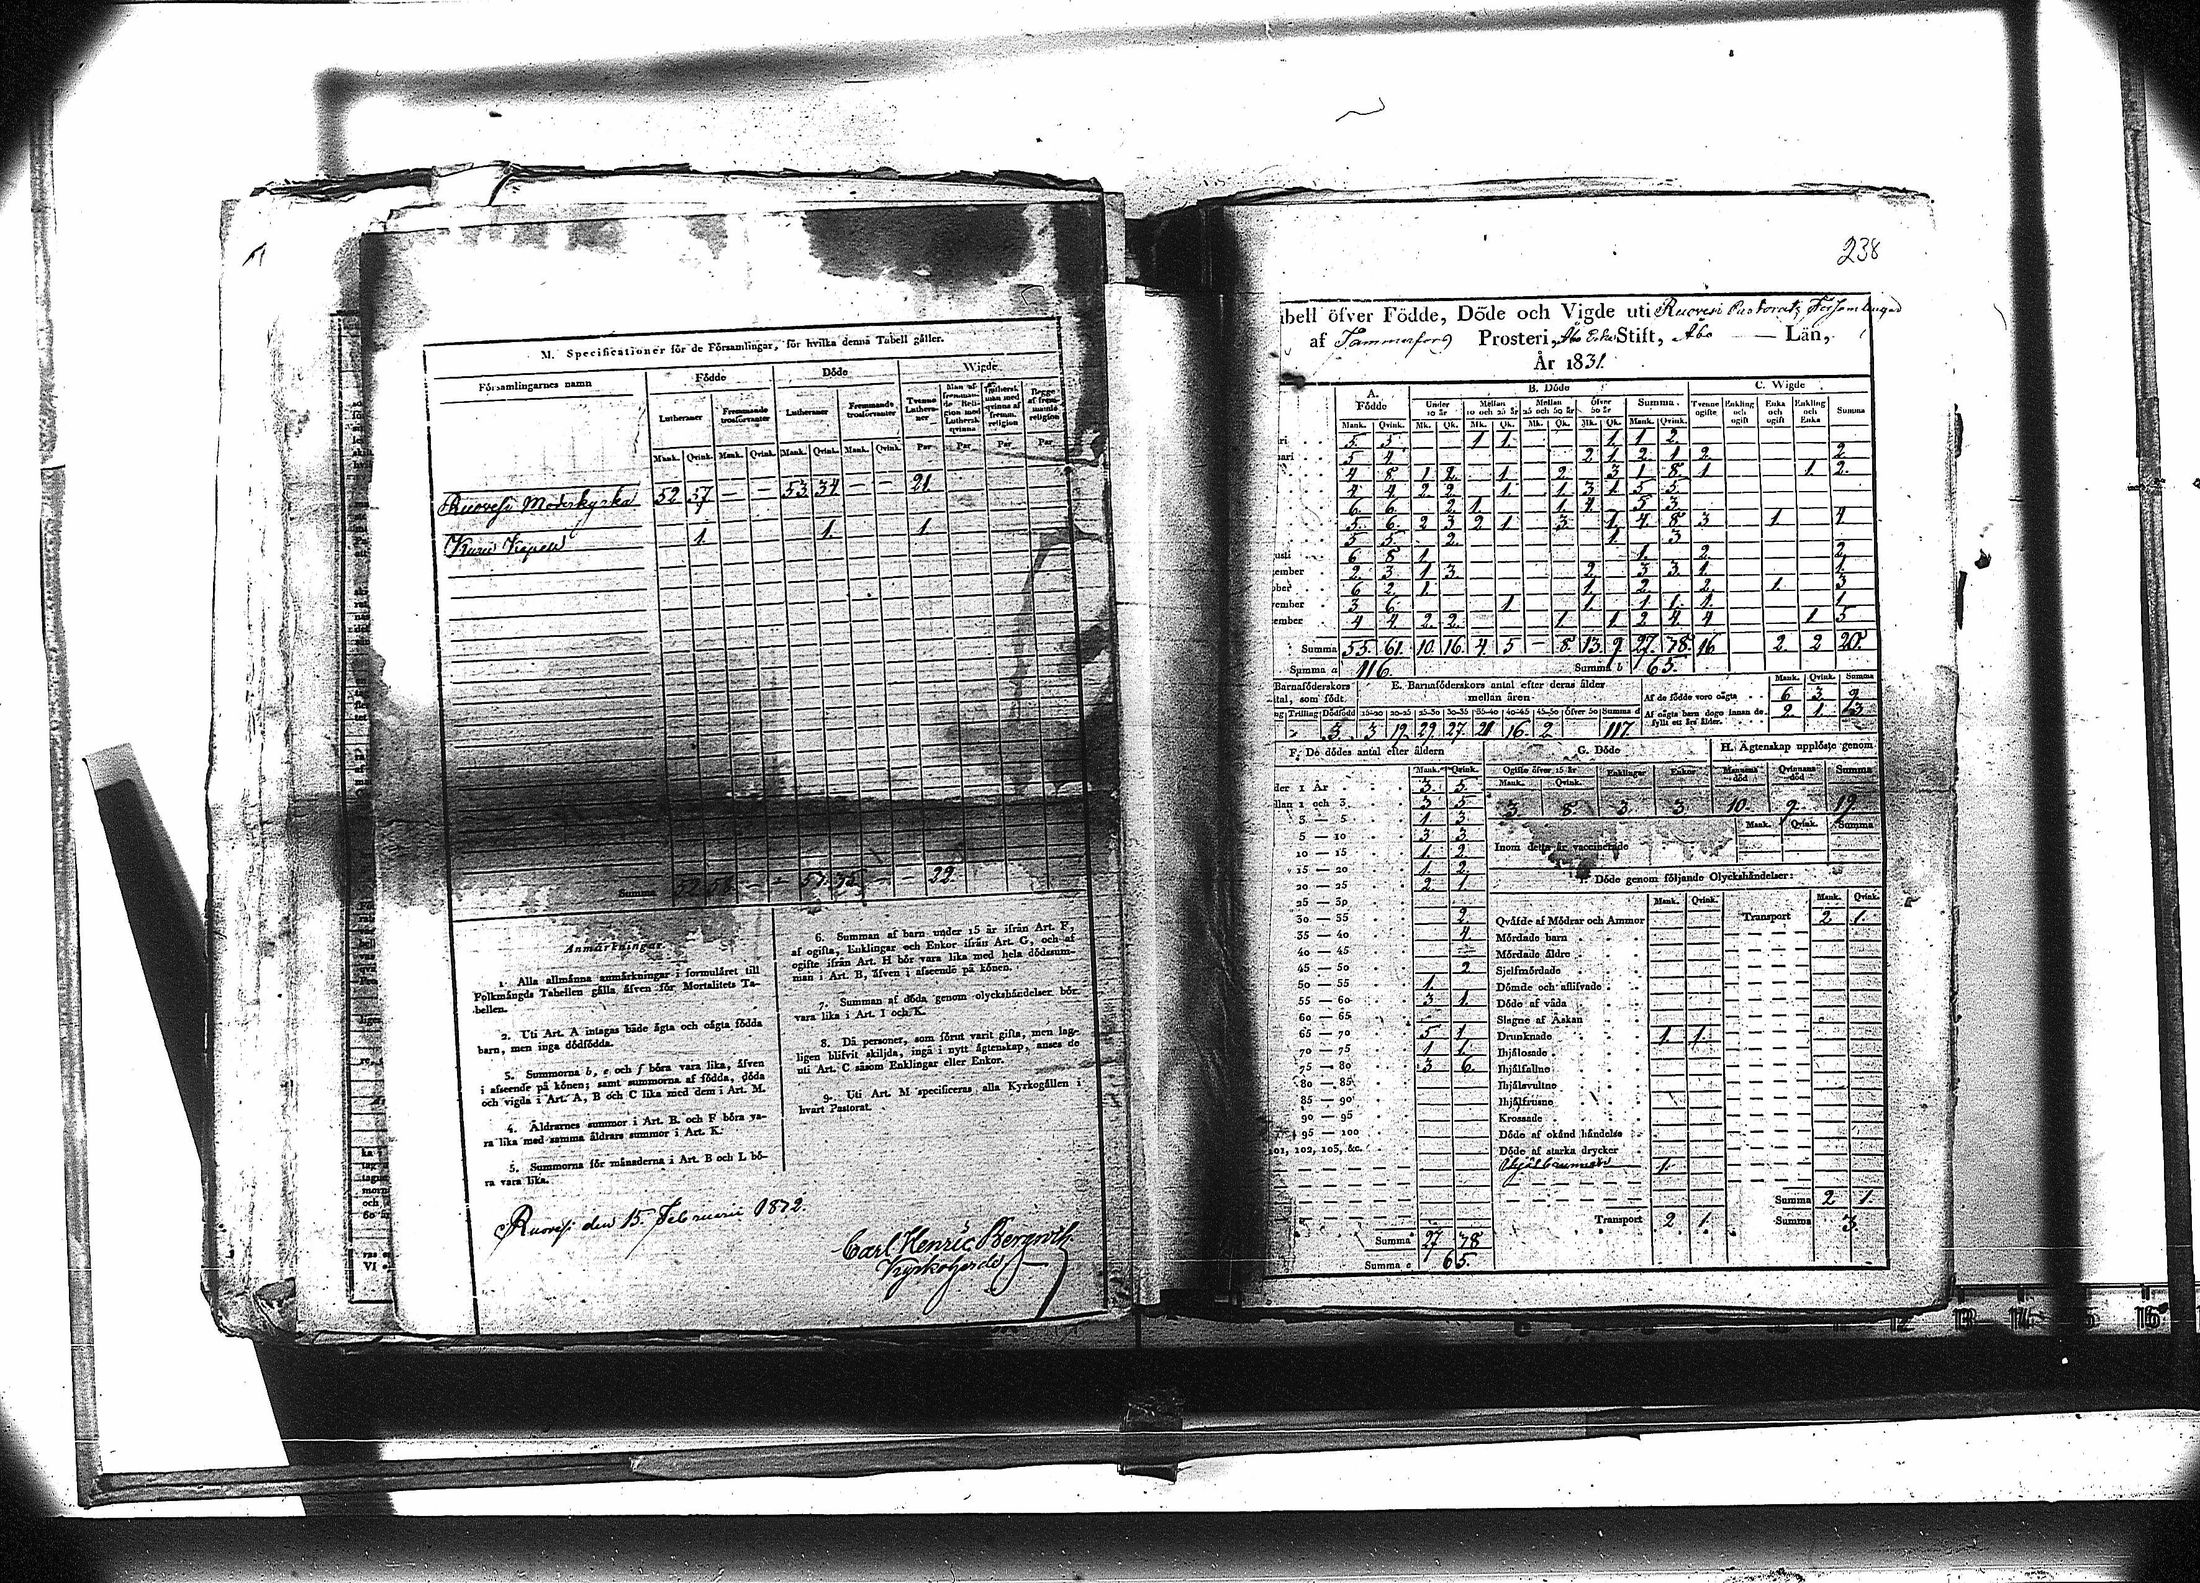 M. Specificationer för de Församlingar, för hvilka denna Tabell gäller.
Församlingarnes namn Födde Döde Wigde
Lutheraner Fremmande trosförvanter Lutheraner Fremmande trosförvanter Tvenne Lutheraner Man af fremmande Religion med Luthersk qvinna Luthersk man med qvinna af fremm. religion Begge af fremmande religion
Mank. Qvink. Mank. Qvink. Mank. Qvink. Mank. Qvink. Par Par Par Par
Ruovesi Moderkyrka 52 57 — — 53 34 — — 21.
1. 1. 1
Summa 52 58 — — 35 — — 22.
Anmärkningar
1. Alla allmänna anmärkningar i formuläret till
Folkmängds Tabellen gälla äfven för Mortalitets Ta-
bellen.
2. Uti Art. A intagas både ägta och oägta födda
barn, men inga dödfödda.
3. Summorna b, e och f böra vara lika, äfven
i afseende på könen; samt summorna af födda, döda
och vigda i Art. A, B och C lika med dem i Art. M.
4. Åldrarnes summor i Art. B. och F böra va-
ra lika med samma åldrars summor i Art. K.
5. Summorna för månaderna i Art. B och L bö-
ra vara lika.
6. Summan af barn under 15 år ifrån Art. F,
af ogifta, Enklingar och Enkor ifrån Art. G, och af
ogifte ifrån Art. H bör vara lika med hela dödssum-
man i Art. B, äfven i afseende på könen.
7. Summan af döda genom olyckshändelser bör
vara lika i Art. I och K.
8. Då personer, som förut varit gifta, men lag-
ligen blifvit skiljda, ingå i nytt ägtenskap, anses de
uti Art. C såsom Enklingar eller Enkor.
9. Uti Art. M specificeras alla Kyrkogällen i
hvart Pastorat.
Ruovesi den 15 Februarii 1832.
Carl Henric Bergroth
Kyrkoherde
238
bell öfver Födde, Döde och Vigde uti Ruovesi Pastorats Församlingar
af Tammerfors Prosteri, Åbo Stift, Åbo — Län,
År 1831.
A. Födde B. Döde C. Wigde
Under 10 år Mellan 10 och 25 år Mellan 25 och 50 år Öfver 50 år Summa. Tvenne ogifte Enkling och ogift Enka och ogift Enkling och Enka Summa
Mank. Qvink. Mk. Qk. Mk. Qk. Mk. Qk. Mk. Qk. Mank. Qvink.
5 3 1 1 1 1 2
5 4 2 1 2 1 2 2
4 8 1 2 1 2 3 1 8 1 1 2
4 4 2 2 1 1 3 1 5 5
6 6 2 1 1 4 5 3
5 6 2 3 2 1 3 1 4 8 3 1 4
5 5 2 1 3
usti 6 8 1 1 2 2
tember 2 3 1 3 2 3 3 1 1
ober 6 2 1 1 2 2 1 3
vember 3 6 1 1 1 1 1 1
ember 4 4 2 2 1 1 2 4 4 1 5
Summa 55 61 10 16 4 5 — 8 13 9 27 38 16 2 2 20
Summa a 116. Summa b 65.
Barnaföderskors
tal, som födt E. Barnaföderskors antal efter deras ålder
mellan åren
Mank. Qvink. Summa
Af de födde voro oägta 6 3 9
Af oägta barn dogo innan de
fyllt ett års ålder. 2 1 3
Trilling Dödfödd 15-20 20-25 25-30 30-35 35-40 40-45 45-50 öfver 50 Summa d
3 3 19 29 27 21 16 2 117.
F. De dödes antal efter åldern G. Döde H. Ägtenskap upplöste genom
Mank. Qvink. Ogifte öfver 15 år Enklingar Enkor Mannens död Qvinnans död Summa
Mank. Qvink.
3 8 3 3 10 9 19
der 1 År 3 5
llan 1 och 3 3 5
3 — 5 1 3
5 — 10 3 3
10 — 15 1 2
15 — 20 1 2
20 — 25 2 1
25 — 30
30 — 35 2
35 — 40 4
40 — 45
45 — 50 2
50 — 55 1
55 — 60 3 1
60 — 65
65 — 70 5 1
70 — 75 1 1
75 — 80 3 6
80 — 85
85 — 90
90 — 95
95 — 100
101, 102, 105, &c.
Summa 27 38
Summa 65.
Mank. Qvink. Summa
Inom detta år vaccinerade
I. Döde genom följande Olyckshändelser:
Mank. Qvink. Mank. Qvink.
Qväfde af Mödrar och Ammor Transport 2 1
Mördade barn
Mördade äldre
Sjelfmördade
Dömde och aflifvade
Döde af våda
Slagne af Åskan
Drunknade 1 1
Ihjälosade
Ihjälfallne
Ihjälsvultne
Ihjälfrusne
Krossade
Döde af okänd händelse
Döde af starka drycker
1
Transport 2 1
Summa 2 1
Summa 3.